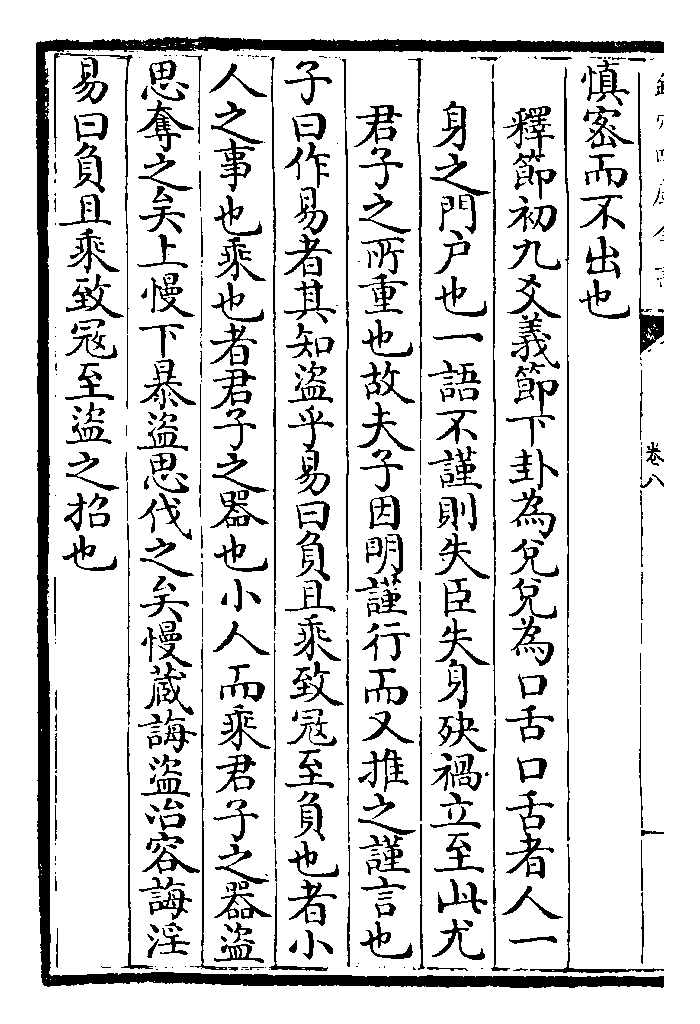 欽定四庫全書
卷八
慎宻而不出也
釋節初九爻義節下卦為兊兊為口舌口舌者人一
身之門户也一語不謹則失臣失身殃禍立至此尤
君子之所重也故夫子因明謹行而又推之謹言也
子曰作易者其知盗乎易曰負且乘致冦至負也者小
人之事也乘也者君子之器也小人而乘君子之器盗
思奪之矣上慢下暴盗思伐之矣慢蔵誨盗冶容誨淫
易曰負且乘致冦至盗之招也